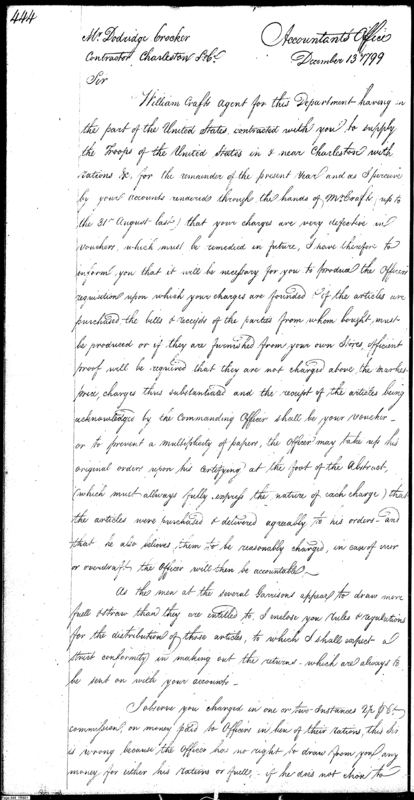 444
Mr. Dodridge Crocker
Accountants Office
Contractor, Charleston So. Ca.
December 13 1799
Sir
William Crafts Agent for this Department having on
the part of the United States, contracted with you to supply
the Troops of the United States in & near Charleston with
rations &c. for the remainder of the present Year and as I perceive
by your accounts rendered through the hands of Mr. Crafts (up to
the 31st August last) that your charges are very defective in
vouchers, which must be remedied in future, I have therefore to
inform you that it will be necessary for you to produce the Officers
requisition upon which your charges are founded & if the articles are
purchased the bills & receipts of the parties from whom bought, must
be produced or if they are furnished from your own Stores, sufficient
proof will be required that they are not charged above the market
price, charges thus substantiated and the receipt of the articles being
acknowledged by the Commanding Officer shall be your voucher -
or to prevent a multiplicity of papers, the officer may take up his
original orders upon his certifying at the foot of the Abstract,
(which must allways fully express the nature of each charge) that
the articles were purchased & delivered agreably to his orders - and
that he also believes them to be reasonably charged, in case of error
or overdraft, the Officer will then be accountable -
As the men at the several Garrisons appear to draw more
fuell & straw than they are entitled to, I inclose you rules & regulations
for the distribution of those articles, to which I shall expect a
strict conformity in making out the returns - which are always to
be sent on with your accounts -
I observe you charged in one or two instances
commission, on money paid to Officers in lieu of their rations, this
is wrong because the Officer has no right to draw from you any
money for either his rations or fuell, - if he does not chose to